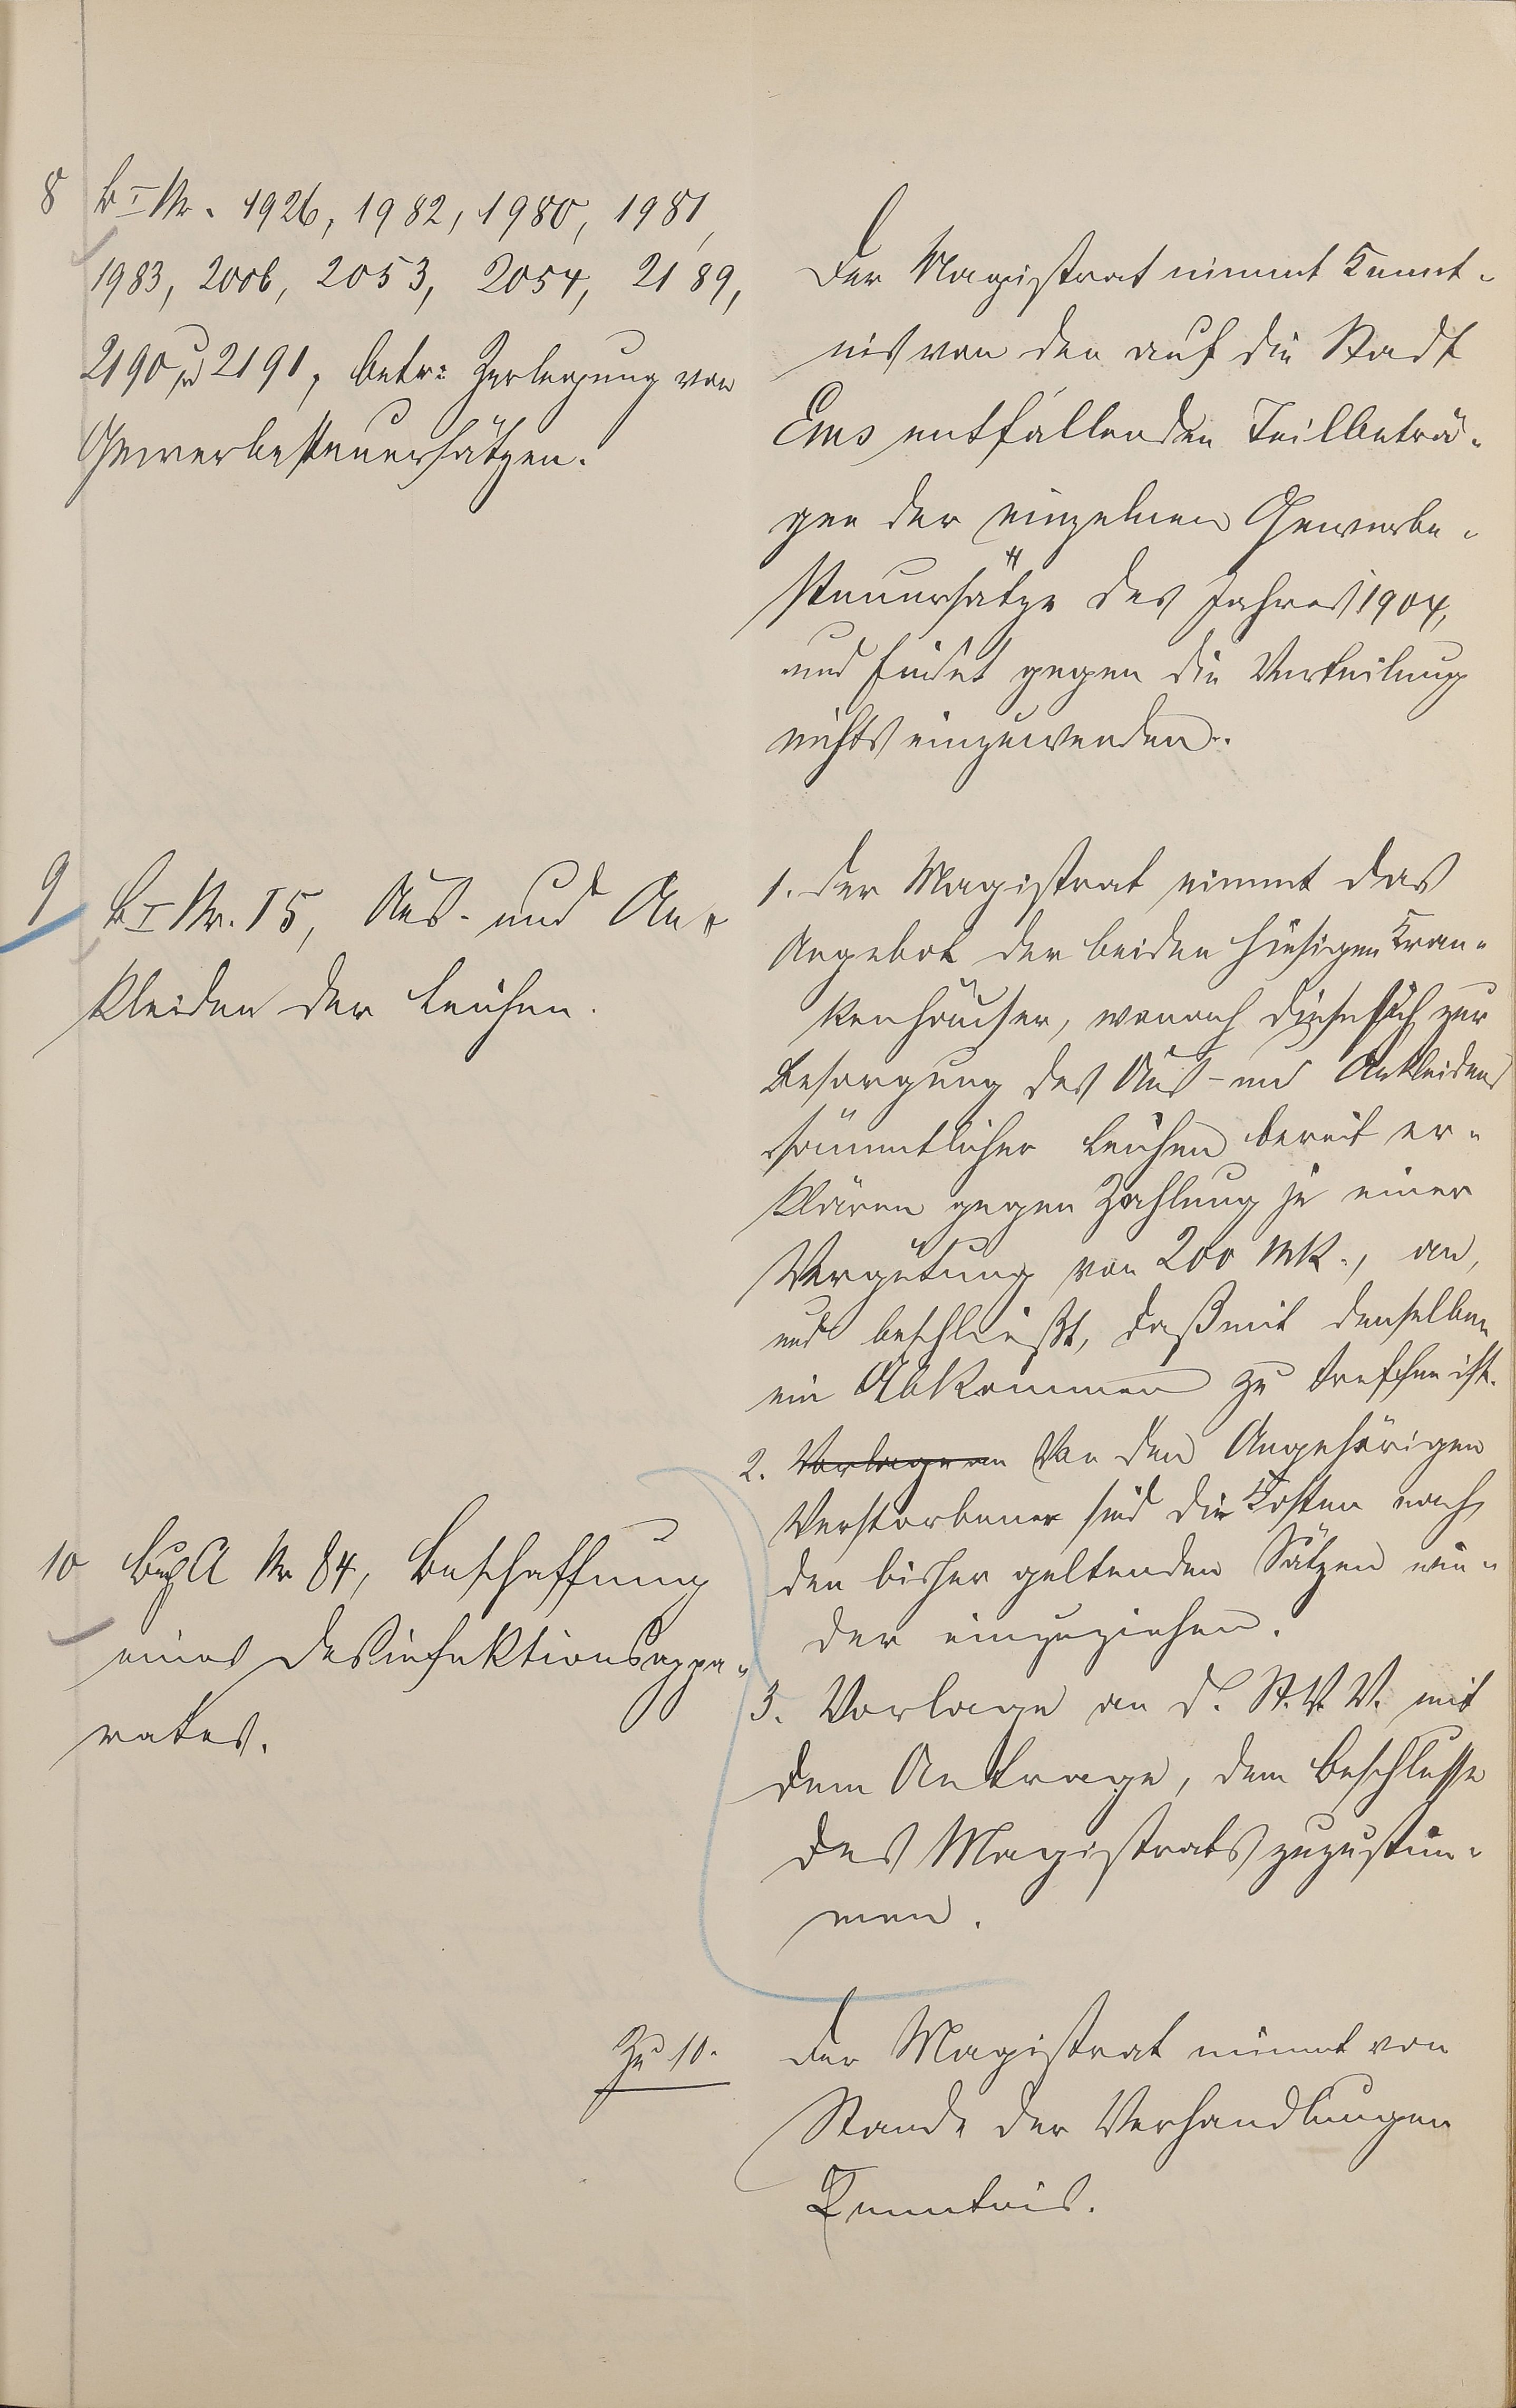 8 B I Nr. 1926, 1982, 1980, 1981,
1983, 2006, 2053, 2054, 2189,
2190 u 2191, betr: Zerlegung von
Gewerbesteuersätzen.
Der Magistrat nimmt Kennt-
nis von den auf die Stadt
Ems entfallenden Teilbeträ-
gen der einzelnen Gewerbe-
steuersätze des Jahres 1904,
und findet gegen die Verteilung
nichts einzuwenden.
9 B I Nr. 15, Aus- und An-
kleiden der Leichen.
1. Der Magistrat nimmt das
Angebot der beiden hiesigen Kran-
kenhäuser, wonach diese sich zur
Besorgung des Aus- und Ankleidens
sämmtlicher Leichen bereit er-
klären gegen Zahlung je einer
Vergütung von 200 Mk., an,
und beschließt, daß mit denselben
ein Abkommen zu treffen ist.
2. Vorlage an Von den Angehörigen
Verstorbener sind die Kosten nach
den bisher geltenden Sätzen wie-
der einzuziehen.
3. Vorlage an d. St. V. V. mit
dem Antrage, dem Beschlusse
des Magistrats zuzustim-
men.
10 A Nr 84, Beschaffung
eines Desinfektionsappa-
rates.
Zu 10. Der Magistrat nimmt von
Stande der Verhandlungen
Kenntnis.